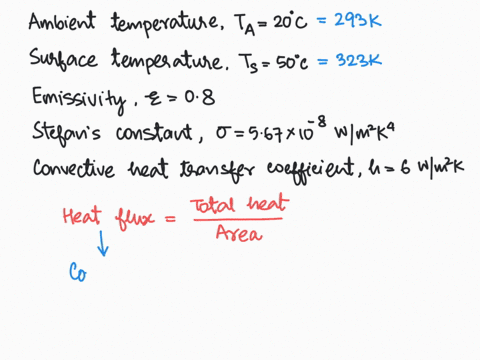 Ambient temperature, T_A = 20°C = 293K
Surface temperature, T_S = 50°C = 323K
Emissivity, ε = 0.8
Stefan's constant, σ = 5.67×10⁻⁸ W/m²K⁴
Convective heat transfer coefficient, h = 6 W/m²K
Heat flux = Total heat / Area
↓
Co